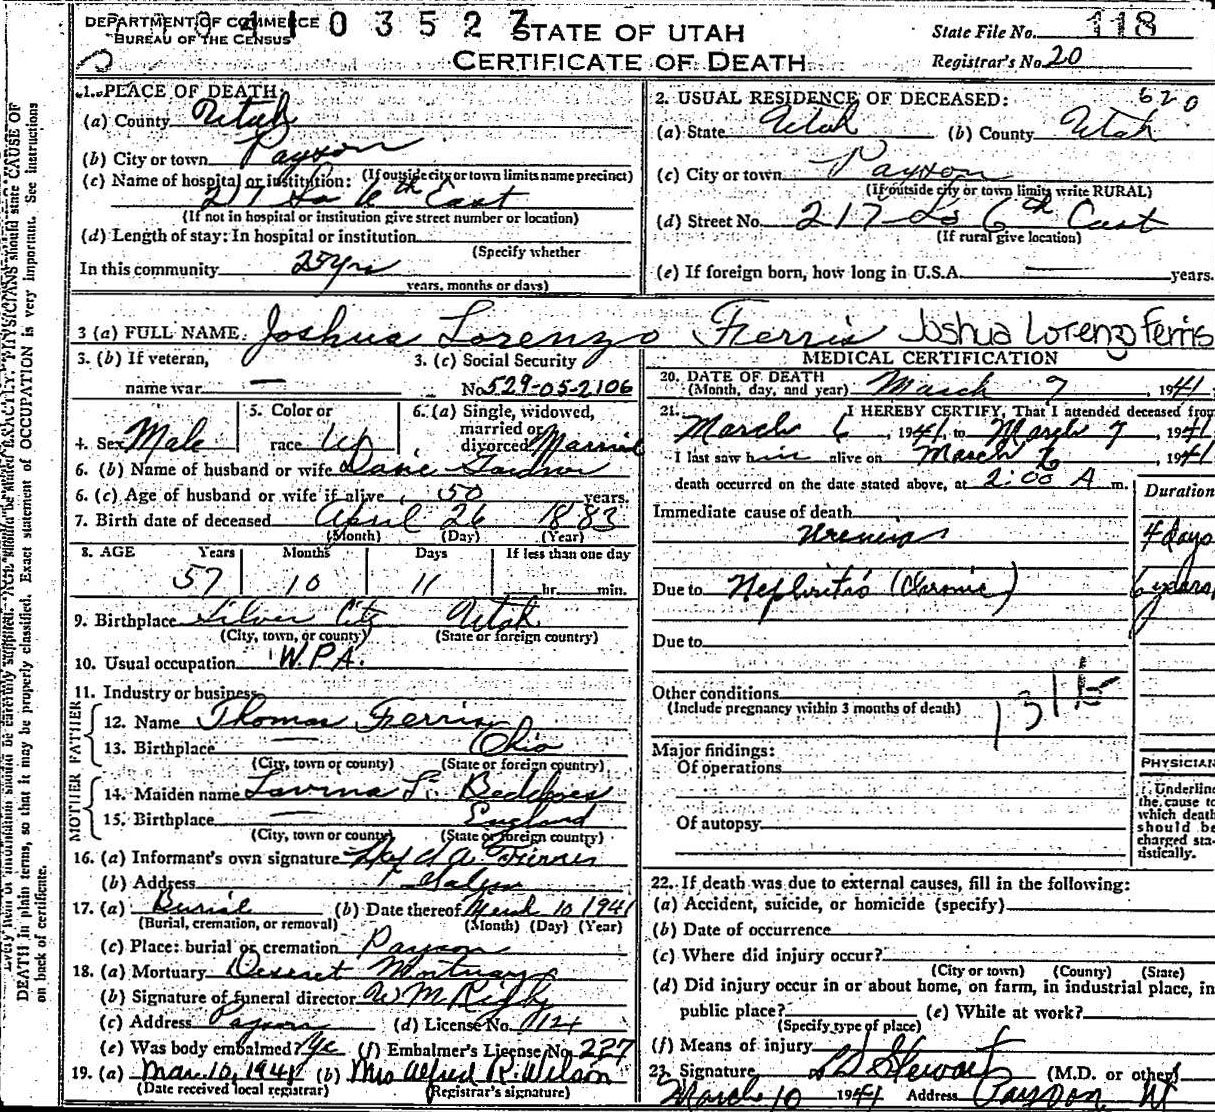 DEPARTMENT OF COMMERCE
BUREAU OF THE CENSUS
0 4 1 0 3 5 2 7
STATE OF UTAH
CERTIFICATE OF DEATH
State File No. 118
Registrar's No. 20
1. PLACE OF DEATH:
(a) County Utah
(b) City or town Payson
(If outside city or town limits name precinct)
(c) Name of hospital or institution:
217 So 6th East
(If not in hospital or institution give street number or location)
(d) Length of stay: In hospital or institution
(Specify whether
In this community 25 yrs
years, months or days)
2. USUAL RESIDENCE OF DECEASED: 620
(a) State Utah (b) County Utah
(c) City or town Payson
(If outside city or town limits write RURAL)
(d) Street No. 217 So 6th East
(If rural give location)
(e) If foreign born, how long in U.S.A. — years.
3 (a) FULL NAME: Joshua Lorenzo Ferris Joshua Lorenzo Ferris
3. (b) If veteran,
name war —
3. (c) Social Security
No 529-05-2106
4. Sex Male
5. Color or
race W
6. (a) Single, widowed,
married or
divorced Married
6. (b) Name of husband or wife
6. (c) Age of husband or wife if alive, 50 years.
7. Birth date of deceased April 26 1883
(Month) (Day) (Year)
8. AGE Years Months Days If less than one day
57 10 11 hr. min.
9. Birthplace Silver City Utah
(City, town, or county) (State or foreign country)
10. Usual occupation W.P.A.
11. Industry or business
FATHER
12. Name Thomas Ferris
13. Birthplace — Ohio
(City, town or county) (State or foreign country)
MOTHER
14. Maiden name Lavina Beddoes
15. Birthplace — England
(City, town or county) (State or foreign country)
16. (a) Informant's own signature
(b) Address Salem
17. (a) Burial (b) Date thereof March 10 1941
(Burial, cremation, or removal) (Month) (Day) (Year)
(c) Place: burial or cremation Payson
18. (a) Mortuary Deseret Mortuary
(b) Signature of funeral director W M Rigby
(c) Address Payson (d) License No. 124
(e) Was body embalmed? (f) Embalmer's License No. 227
19. (a) Mar. 10, 1941 (b) Mrs Alfred R. Wilson
(Date received local registrar) (Registrar's signature)
MEDICAL CERTIFICATION
20. DATE OF DEATH
(Month, day, and year) March 7, 1941
21. I HEREBY CERTIFY, That I attended deceased from
March 6, 1941, to March 7, 1941
I last saw him alive on March 6, 1941
death occurred on the date stated above, at 2:00 A m.
Duration
Immediate cause of death
Uremia 4 days
Due to Nephritis (Chronic) 6 years
Due to
Other conditions
(Include pregnancy within 3 months of death)
Major findings:
Of operations
Of autopsy
PHYSICIAN
Underline
the cause to
which death
should be
charged sta-
tistically.
22. If death was due to external causes, fill in the following:
(a) Accident, suicide, or homicide (specify)
(b) Date of occurrence
(c) Where did injury occur?
(City or town) (County) (State)
(d) Did injury occur in or about home, on farm, in industrial place, in
public place? (e) While at work?
(Specify type of place)
(f) Means of injury
23. Signature Stewart (M.D. or other)
March 10 1941 Address Payson Ut
AGE should be stated EXACTLY. PHYSICIANS should state CAUSE OF
DEATH in plain terms, so that it may be properly classified. Exact statement of OCCUPATION is very important. See Instructions
on back of certificate.